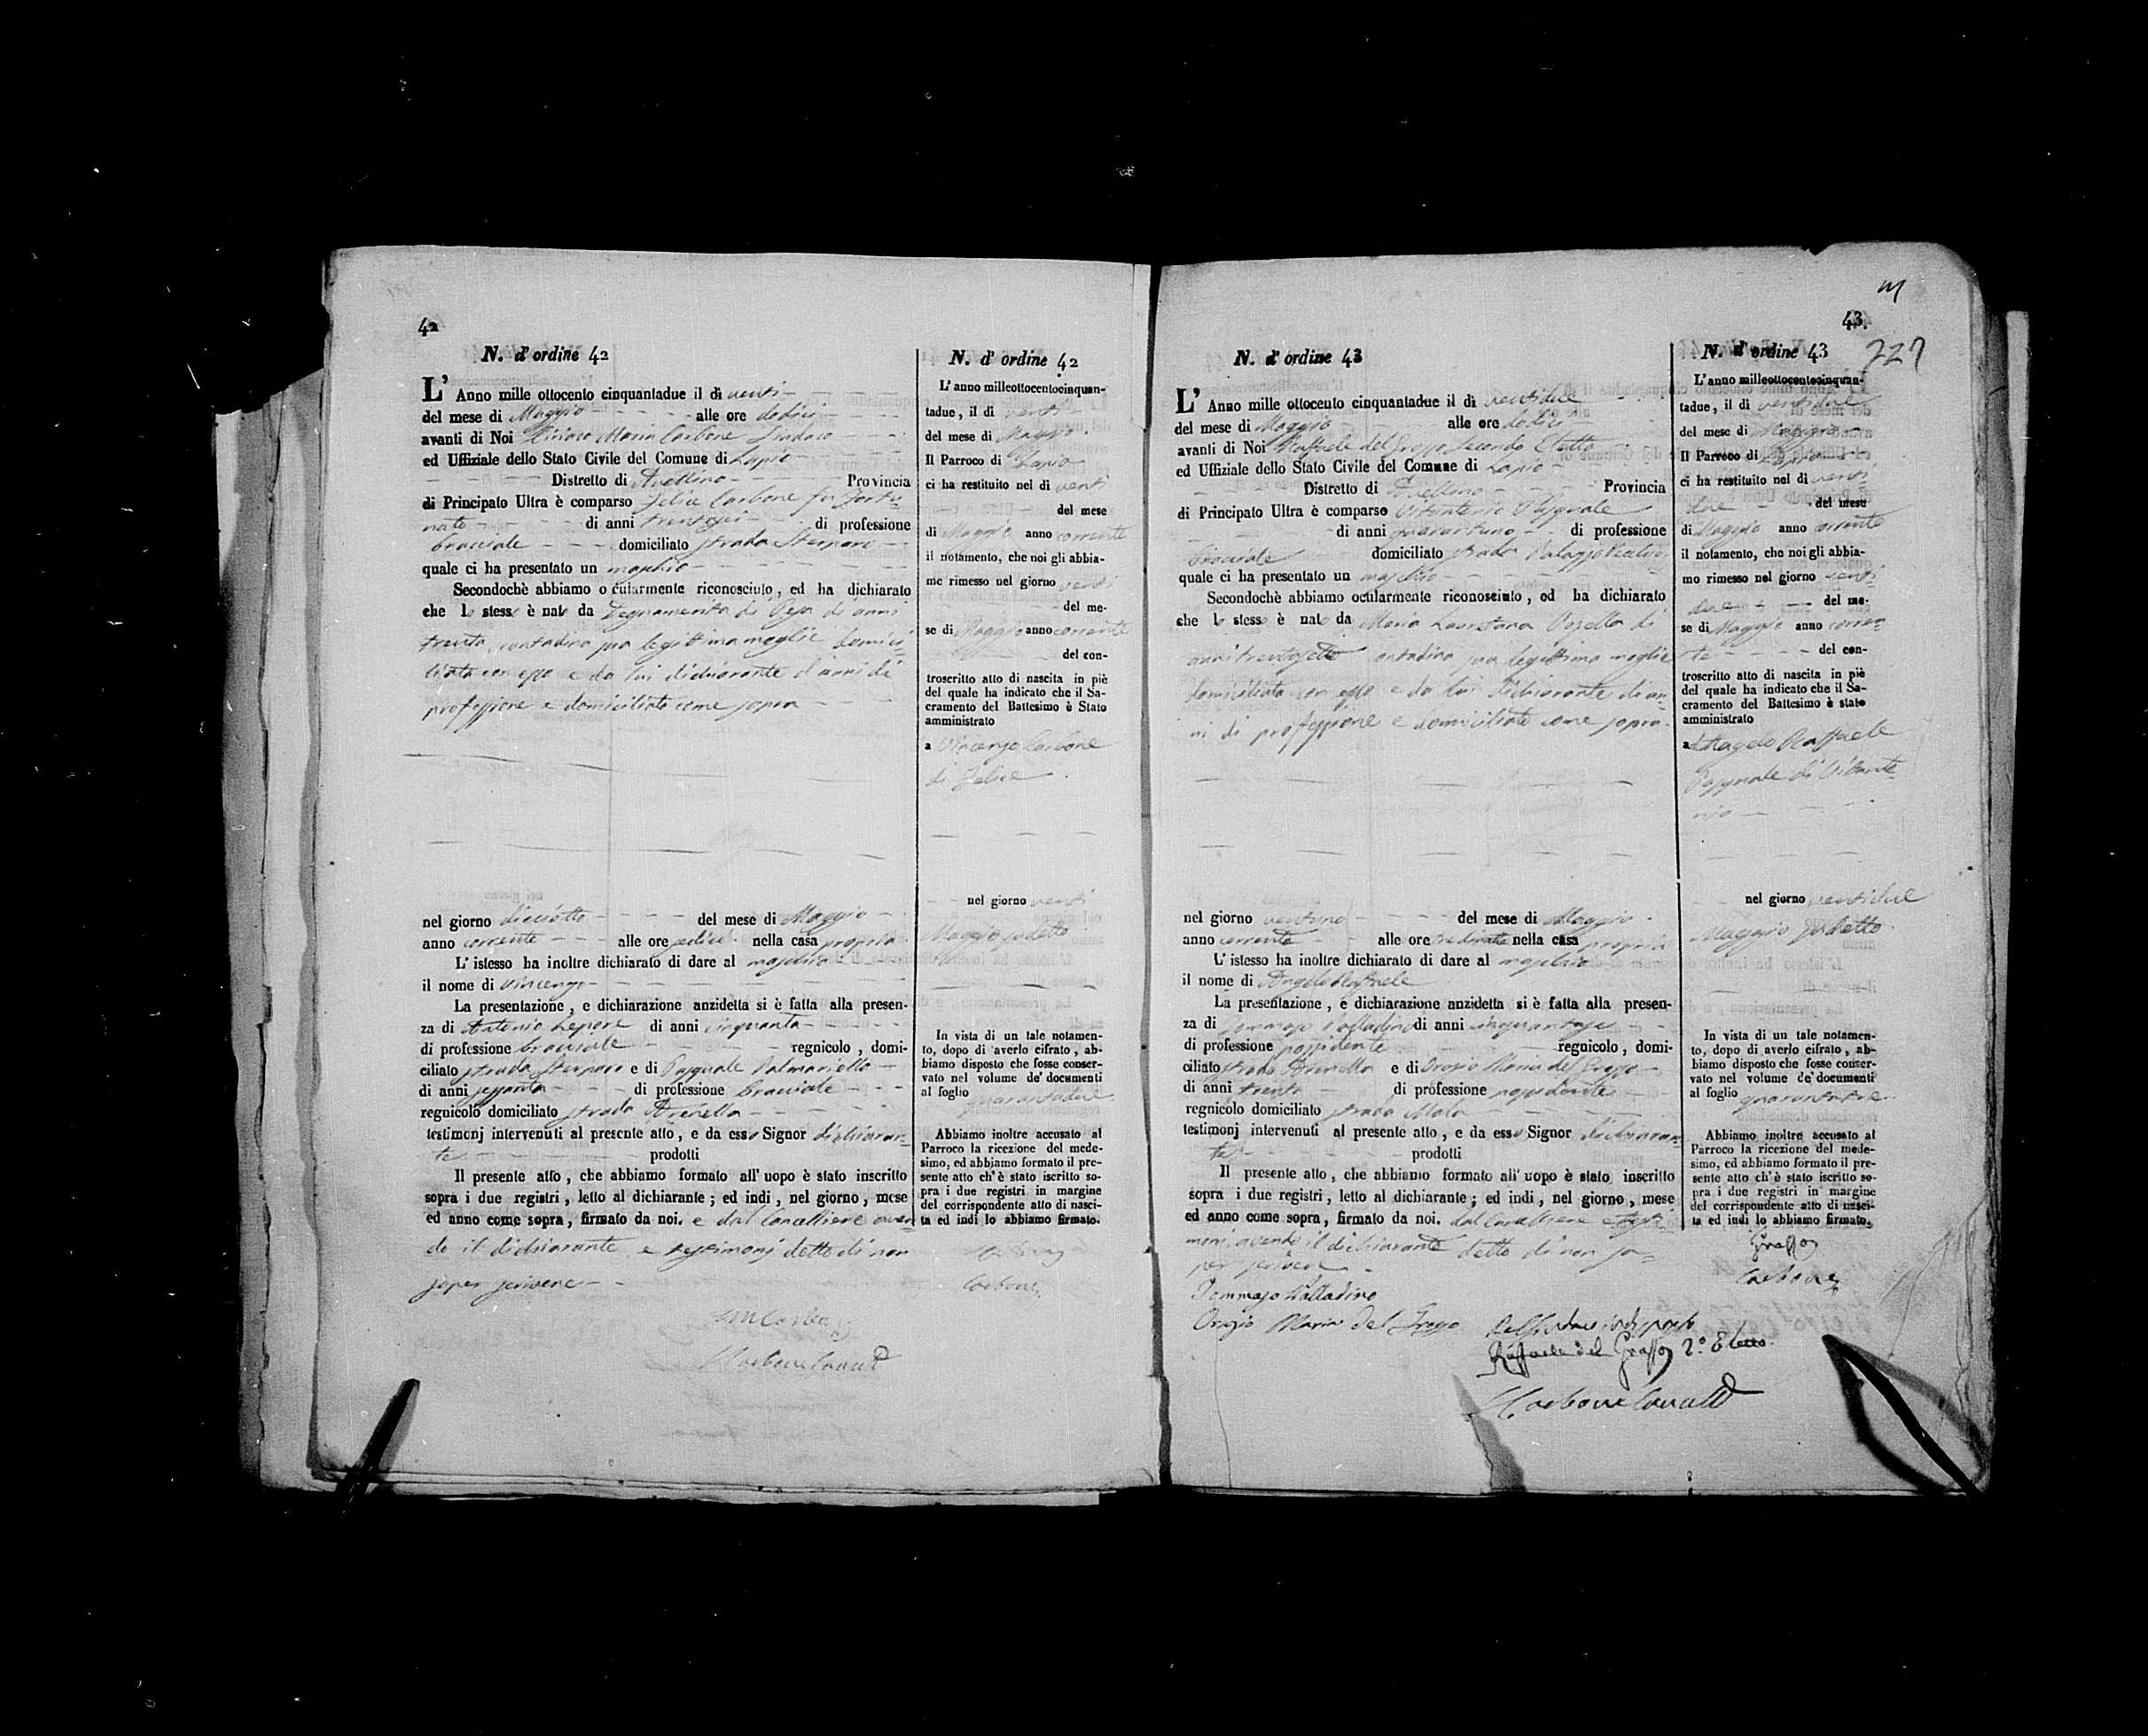 42
N. d' ordine 42
L' Anno mille ottocento cinquantadue il dì venti
del mese di Maggio alle ore dodici
avanti di Noi Ciriaco Maria Carbone Sindaco
ed Uffiziale dello Stato Civile del Comune di Lapio
Distretto di Avellino Provincia
di Principato Ultra è comparso Felice Carbone fu Fortu-
nato di anni trentasei di professione
bracciale domiciliato strada Sterparo
quale ci ha presentato un maschio
Secondochè abbiamo o cularmente riconosciuto, ed ha dichiarato
che lo stesso è nato da Degnamerita di Pesa di anni
trenta, contadina sua legittima moglie domici-
liata con esso e da lui dichiarante d'anni di
professione e domiciliato come sopra
nel giorno diciotto del mese di Maggio
anno corrente alle ore sedici nella casa propria
L' istesso ha inoltre dichiarato di dare al maschio
il nome di Vincenzo
La presentazione, e dichiarazione anzidetta si è fatta alla presen-
za di Antonio Lepore di anni cinquanta
di professione bracciale regnicolo, domi-
ciliato strada Sterparo e di Pasquale Palmariello
di anni sessanta di professione bracciale
regnicolo domiciliato strada Arenella
testimonj intervenuti al presente atto, e da esso Signor dichiaran-
te prodotti
Il presente atto, che abbiamo formato all' uopo è stato inscritto
sopra i due registri, letto al dichiarante; ed indi, nel giorno, mese
ed anno come sopra, firmato da noi. e dal Cancelliere aven-
do il dichiarante e testimonj detto di non
saper scrivere
N. d' ordine 42
L' anno milleottocentocinquan-
tadue, il dì venti
del mese di Maggio
Il Parroco di Lapio
ci ha restituito nel dì venti
del mese
di Maggio anno corrente
il notamento, che noi gli abbia-
mo rimesso nel giorno venti
del me-
se di Maggio anno corrente
del con-
troscritto atto di nascita in piè
del quale ha indicato che il Sa-
cramento del Battesimo è Stato
amministrato
a Vincenzo Carbone
di Felice
nel giorno venti
Maggio sudetto
In vista di un tale notamen-
to, dopo di averlo cifrato, ab-
biamo disposto che fosse conser-
vato nel volume de' documenti
al foglio quarantadue
Abbiamo inoltre accusato al
Parroco la ricezione del mede-
simo, ed abbiamo formato il pre-
sente atto ch' è stato iscritto so-
pra i due registri in margine
del corrispondente atto di nasci-
ta ed indi lo abbiamo firmato.
Carbone
43
227
N. d' ordine 43
L' Anno mille ottocento cinquantadue il dì ventidue
del mese di Maggio alle ore dodici
avanti di Noi Raffaele del Grosso Secondo Eletto
ed Uffiziale dello Stato Civile del Comune di Lapio
Distretto di Avellino Provincia
di Principato Ultra è comparso Pasquale
di anni quarantuno di professione
bracciale domiciliato strada Palazzo
quale ci ha presentato un maschio
Secondochè abbiamo ocularmente riconosciuto, ed ha dichiarato
che lo stesso è nato da Maria Lauretana di
anni trentasette contadina sua legittima moglie
domiciliata con esso e da lui dichiarante di an-
ni di professione e domiciliato come sopra
nel giorno ventuno del mese di Maggio
anno corrente alle ore nella casa propria
L' istesso ha inoltre dichiarato di dare al maschio
il nome di Angelo Raffaele
La presentazione, e dichiarazione anzidetta si è fatta alla presen-
za di Tommaso Palladino di anni
di professione possidente regnicolo, domi-
ciliato strada Arenella e di Orazio Maria del Grosso
di anni trenta di professione possidente
regnicolo domiciliato strada
testimonj intervenuti al presente atto, e da esso Signor dichiaran-
te prodotti
Il presente atto, che abbiamo formato all' uopo è stato inscritto
sopra i due registri, letto al dichiarante; ed indi, nel giorno, mese
ed anno come sopra, firmato da noi. dal Cancelliere e testi-
monj avendo il dichiarante detto di non sa-
per scrivere
Tommaso Palladino
Orazio Maria del Grosso
Raffaele del Grosso 2.º Eletto
N. d' ordine 43
L' anno milleottocentocinquan-
tadue, il dì ventidue
del mese di Maggio
Il Parroco di Lapio
ci ha restituito nel dì venti-
due del mese
di Maggio anno corrente
il notamento, che noi gli abbia-
mo rimesso nel giorno venti-
due del me-
se di Maggio anno corren-
te del con-
troscritto atto di nascita in piè
del quale ha indicato che il Sa-
cramento del Battesimo è stato
amministrato
a Angelo Raffaele
Pasquale di
nel giorno ventidue
Maggio sudetto
In vista di un tale notamen-
to, dopo di averlo cifrato, ab-
biamo disposto che fosse conser-
vato nel volume de' documenti
al foglio quarantatre
Abbiamo inoltre accusato al
Parroco la ricezione del mede-
simo, ed abbiamo formato il pre-
sente atto ch' è stato iscritto so-
pra i due registri in margine
del corrispondente atto di nasci-
ta ed indi lo abbiamo firmato.
Grosso
Carbone